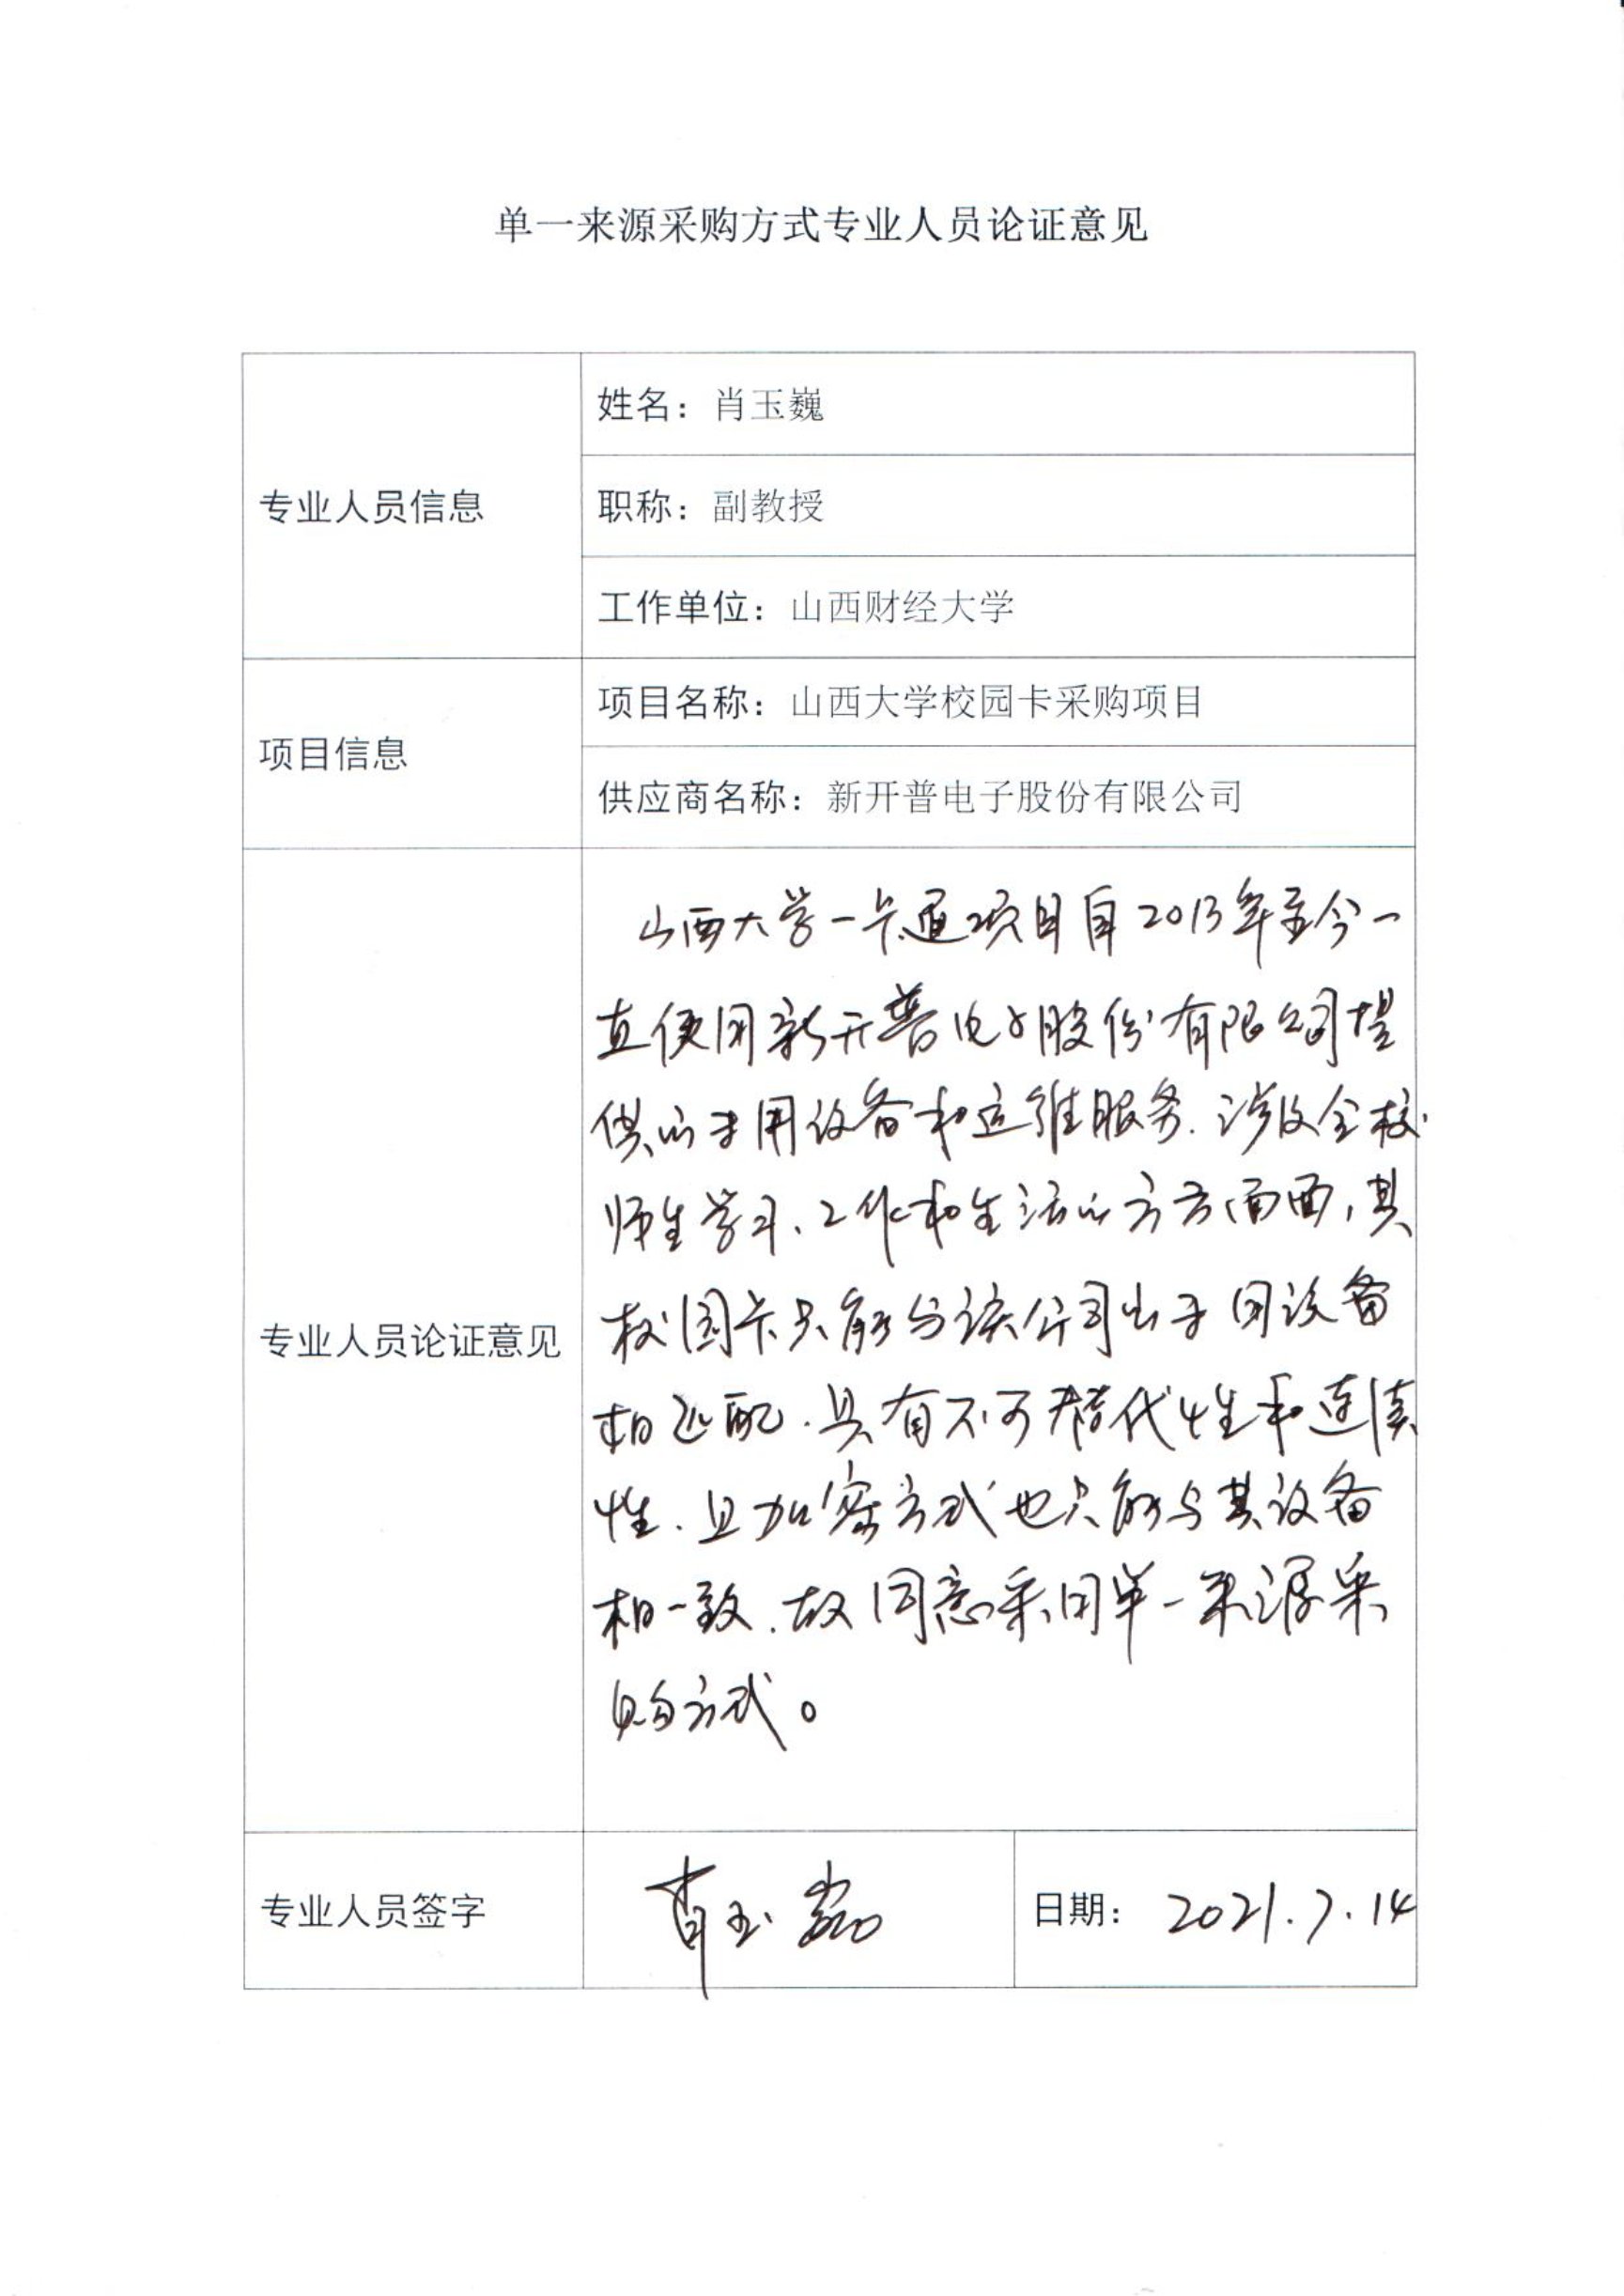 单一来源采购方式专业人员论证意见
专业人员信息
姓名：肖玉巍
职称：副教授
工作单位：山西财经大学
项目信息
项目名称：山西大学校园卡采购项目
供应商名称：新开普电子股份有限公司
专业人员论证意见
山西大学一卡通项目自2013年至今一
直使用新开普电子股份有限公司提
供的专用设备和运维服务.涉及全校
师生学习、工作和生活的方方面面,其
校园卡只能与该公司的专用设备
相匹配.具有不可替代性和连续
性.且加密方式也只能与其设备
相一致.故同意采用单一来源采
购方式。
专业人员签字
肖玉巍
日期：2021.7.14